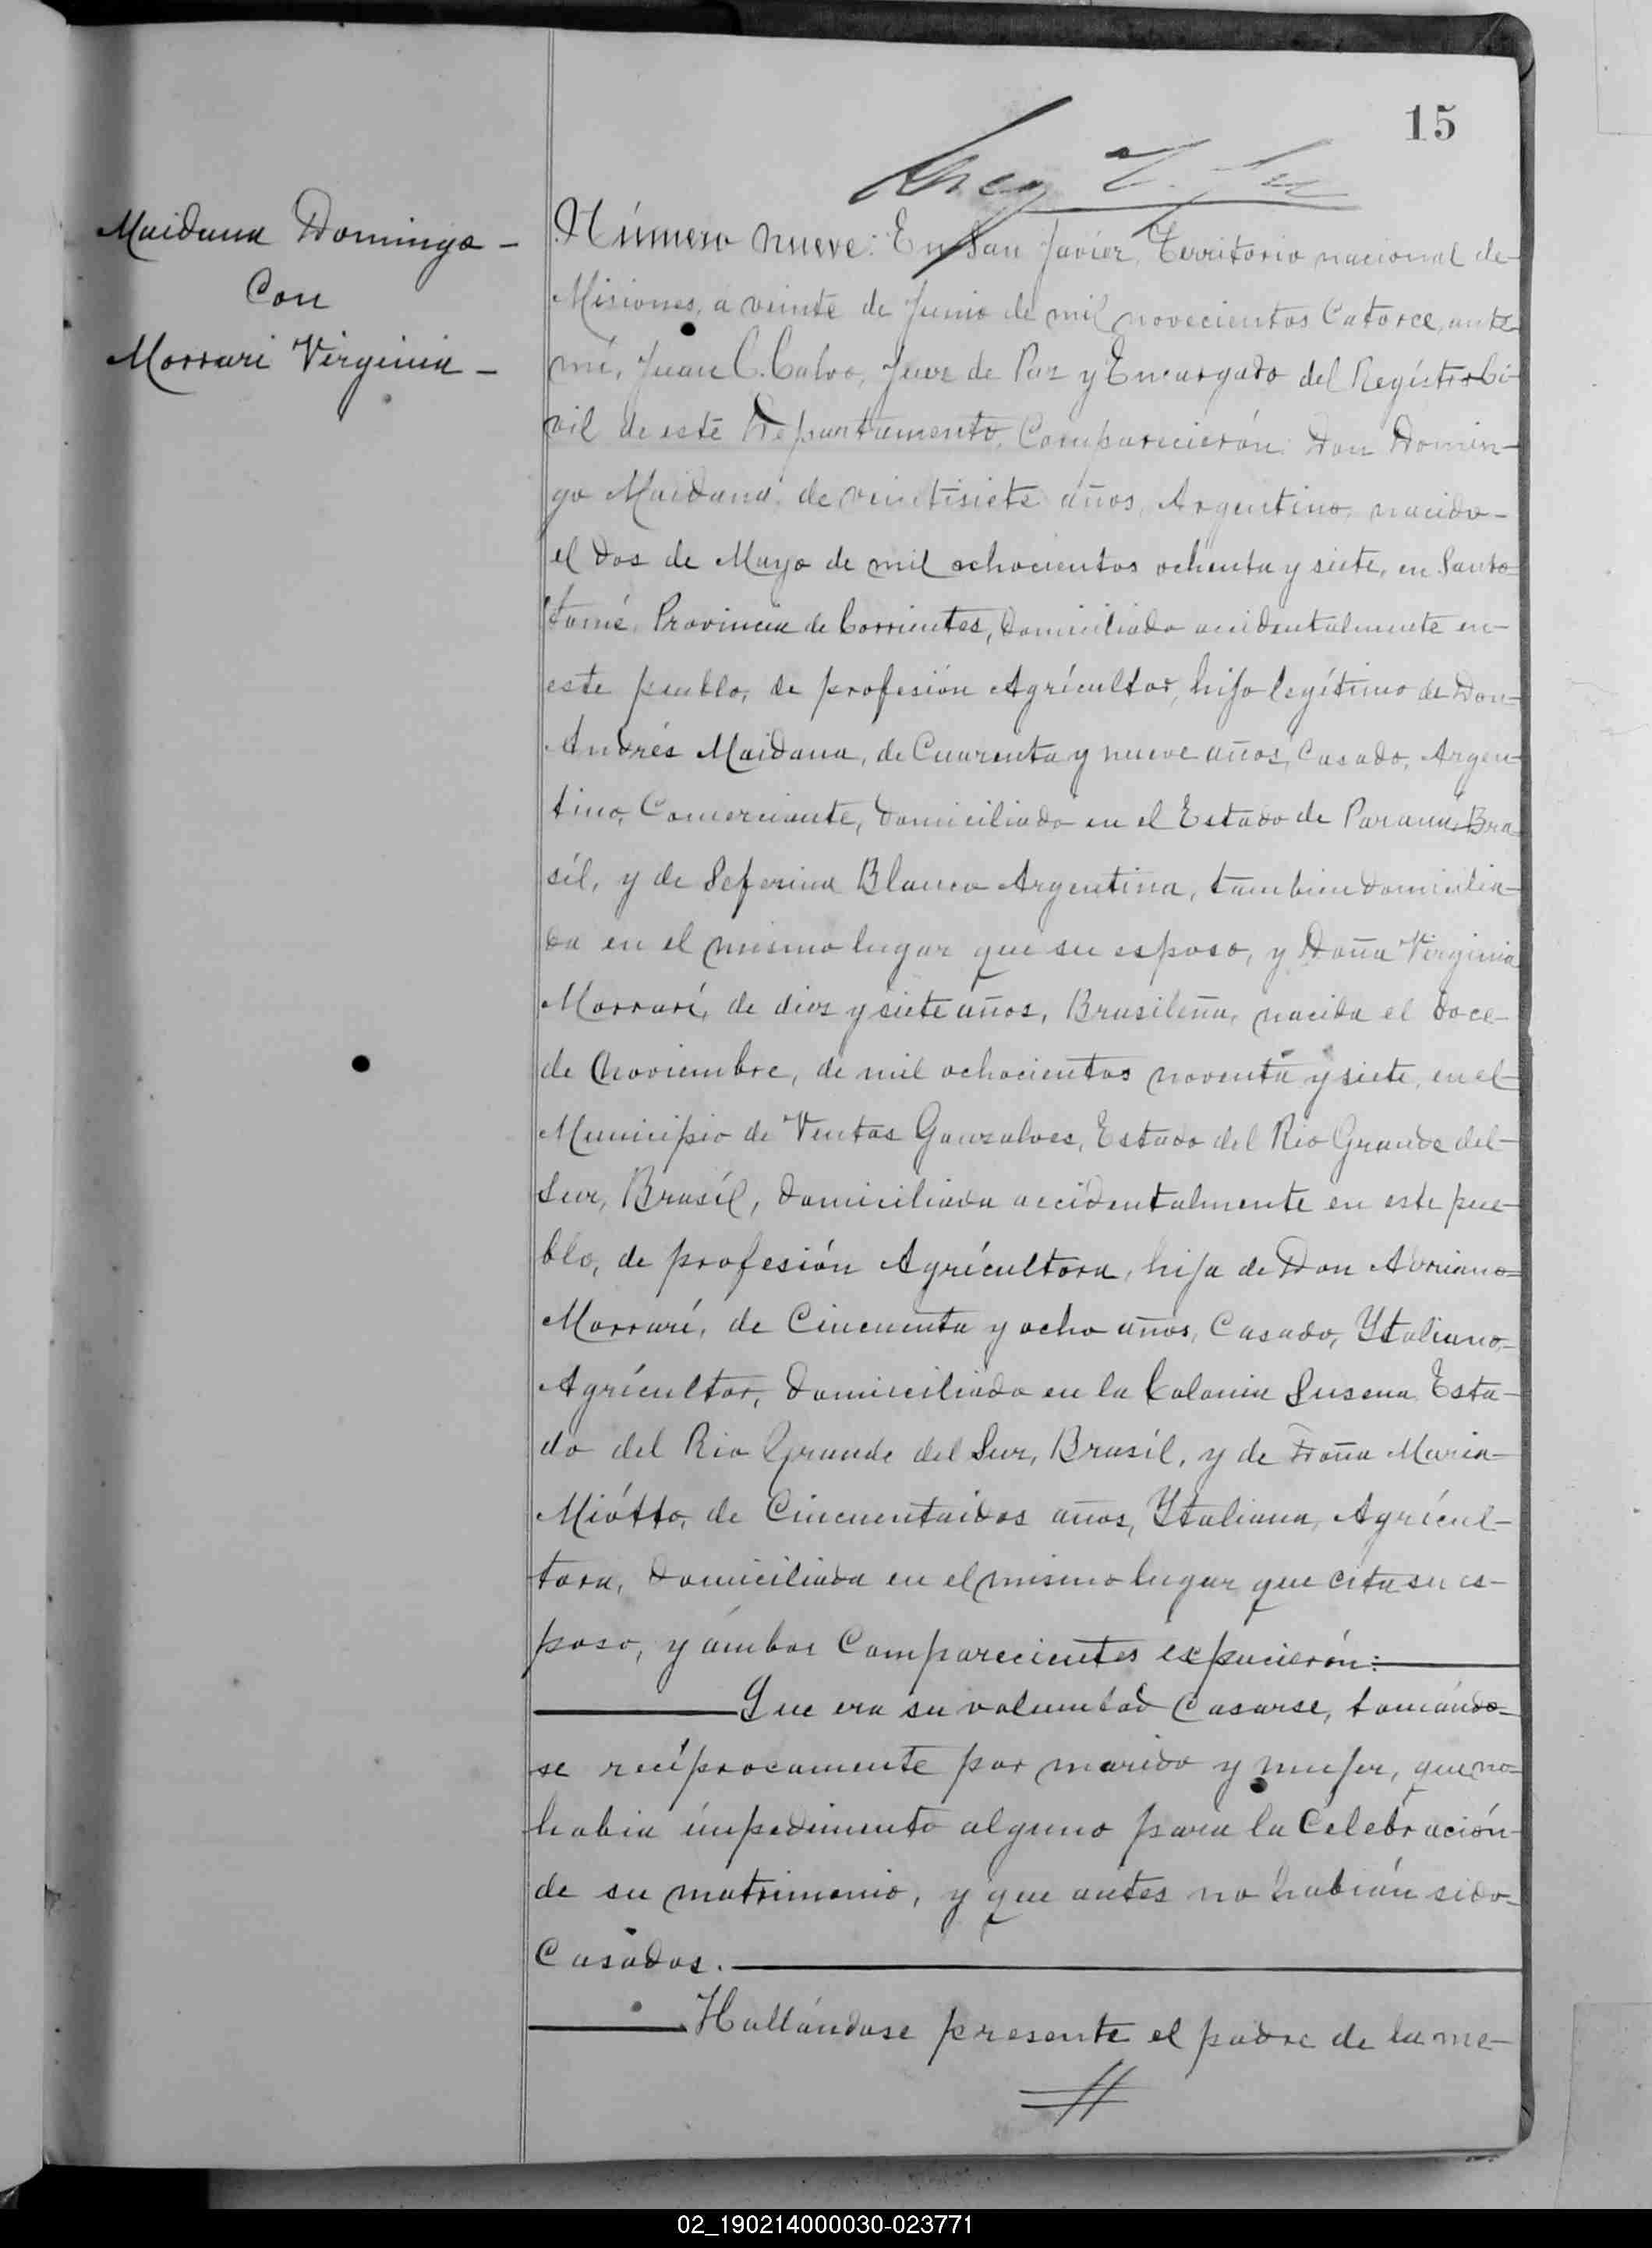 15
Maidana Domingo -
Con
Morrari Virginia -
Número nueve: En San Javier, Territorio nacional de-
Misiones, a veinte de Junio de mil novecientos Catorce, ante
mí, Juan C. Calvo, Juez de Paz y Encargado del Registro Ci-
vil de este Departamento, Comparecierón: Don Domin-
go Maidana, de veintisiete años, Argentino, nacido-
el dos de Mayo de mil ochocientos ochenta y siete, en Santo=
tomé, Provincia de Corrientes, domiciliado accidentalmente en-
este pueblo, de profesión Agrícultor, hijo legítimo de Don-
Andrés Maidana, de Cuarenta y nueve años, Casado, Argen-
tino, Comerciante, domiciliado en el Estado de Paraná, Bra-
síl, y de Seferina Blanco Argentina, tambien domicilia-
da en el mismo lugar que su esposo, y Doña Virginia
Morrarí, de diez y siete años, Brasileña, nacida el doce-
de Noviembre, de mil ochocientos noventa y siete, en el-
Municipio de Ventos Gonzalves, Estado del Rio Grande del-
Sur, Brasíl, domiciliada accidentalmente en este pue-
blo, de profesión Agrícultora, hija de Don Adriano=
Morrarí, de Cincuenta y ocho años, Casado, Ytaliano,-
Agrícultor, domiciliado en la Colonia Susena, Esta-
do del Rio Grande del Sur, Brasíl, y de Doña Maria-
Miótto, de Cincuentaidos años, Ytaliana, Agrícul-
tora, domiciliada en el mismo lugar que cita su es-
poso, y ámbos Comparecientes expucierón:
Que era su voluntad Casarse, tomándo=
se recíprocamente por marido y mujer, que no=
habia ímpedimento alguno para la Celebración-
de su matrimonio, y que antes no habían sido-
Casados.
Hallándose presente el padre de la me-
02_190214000030-023771